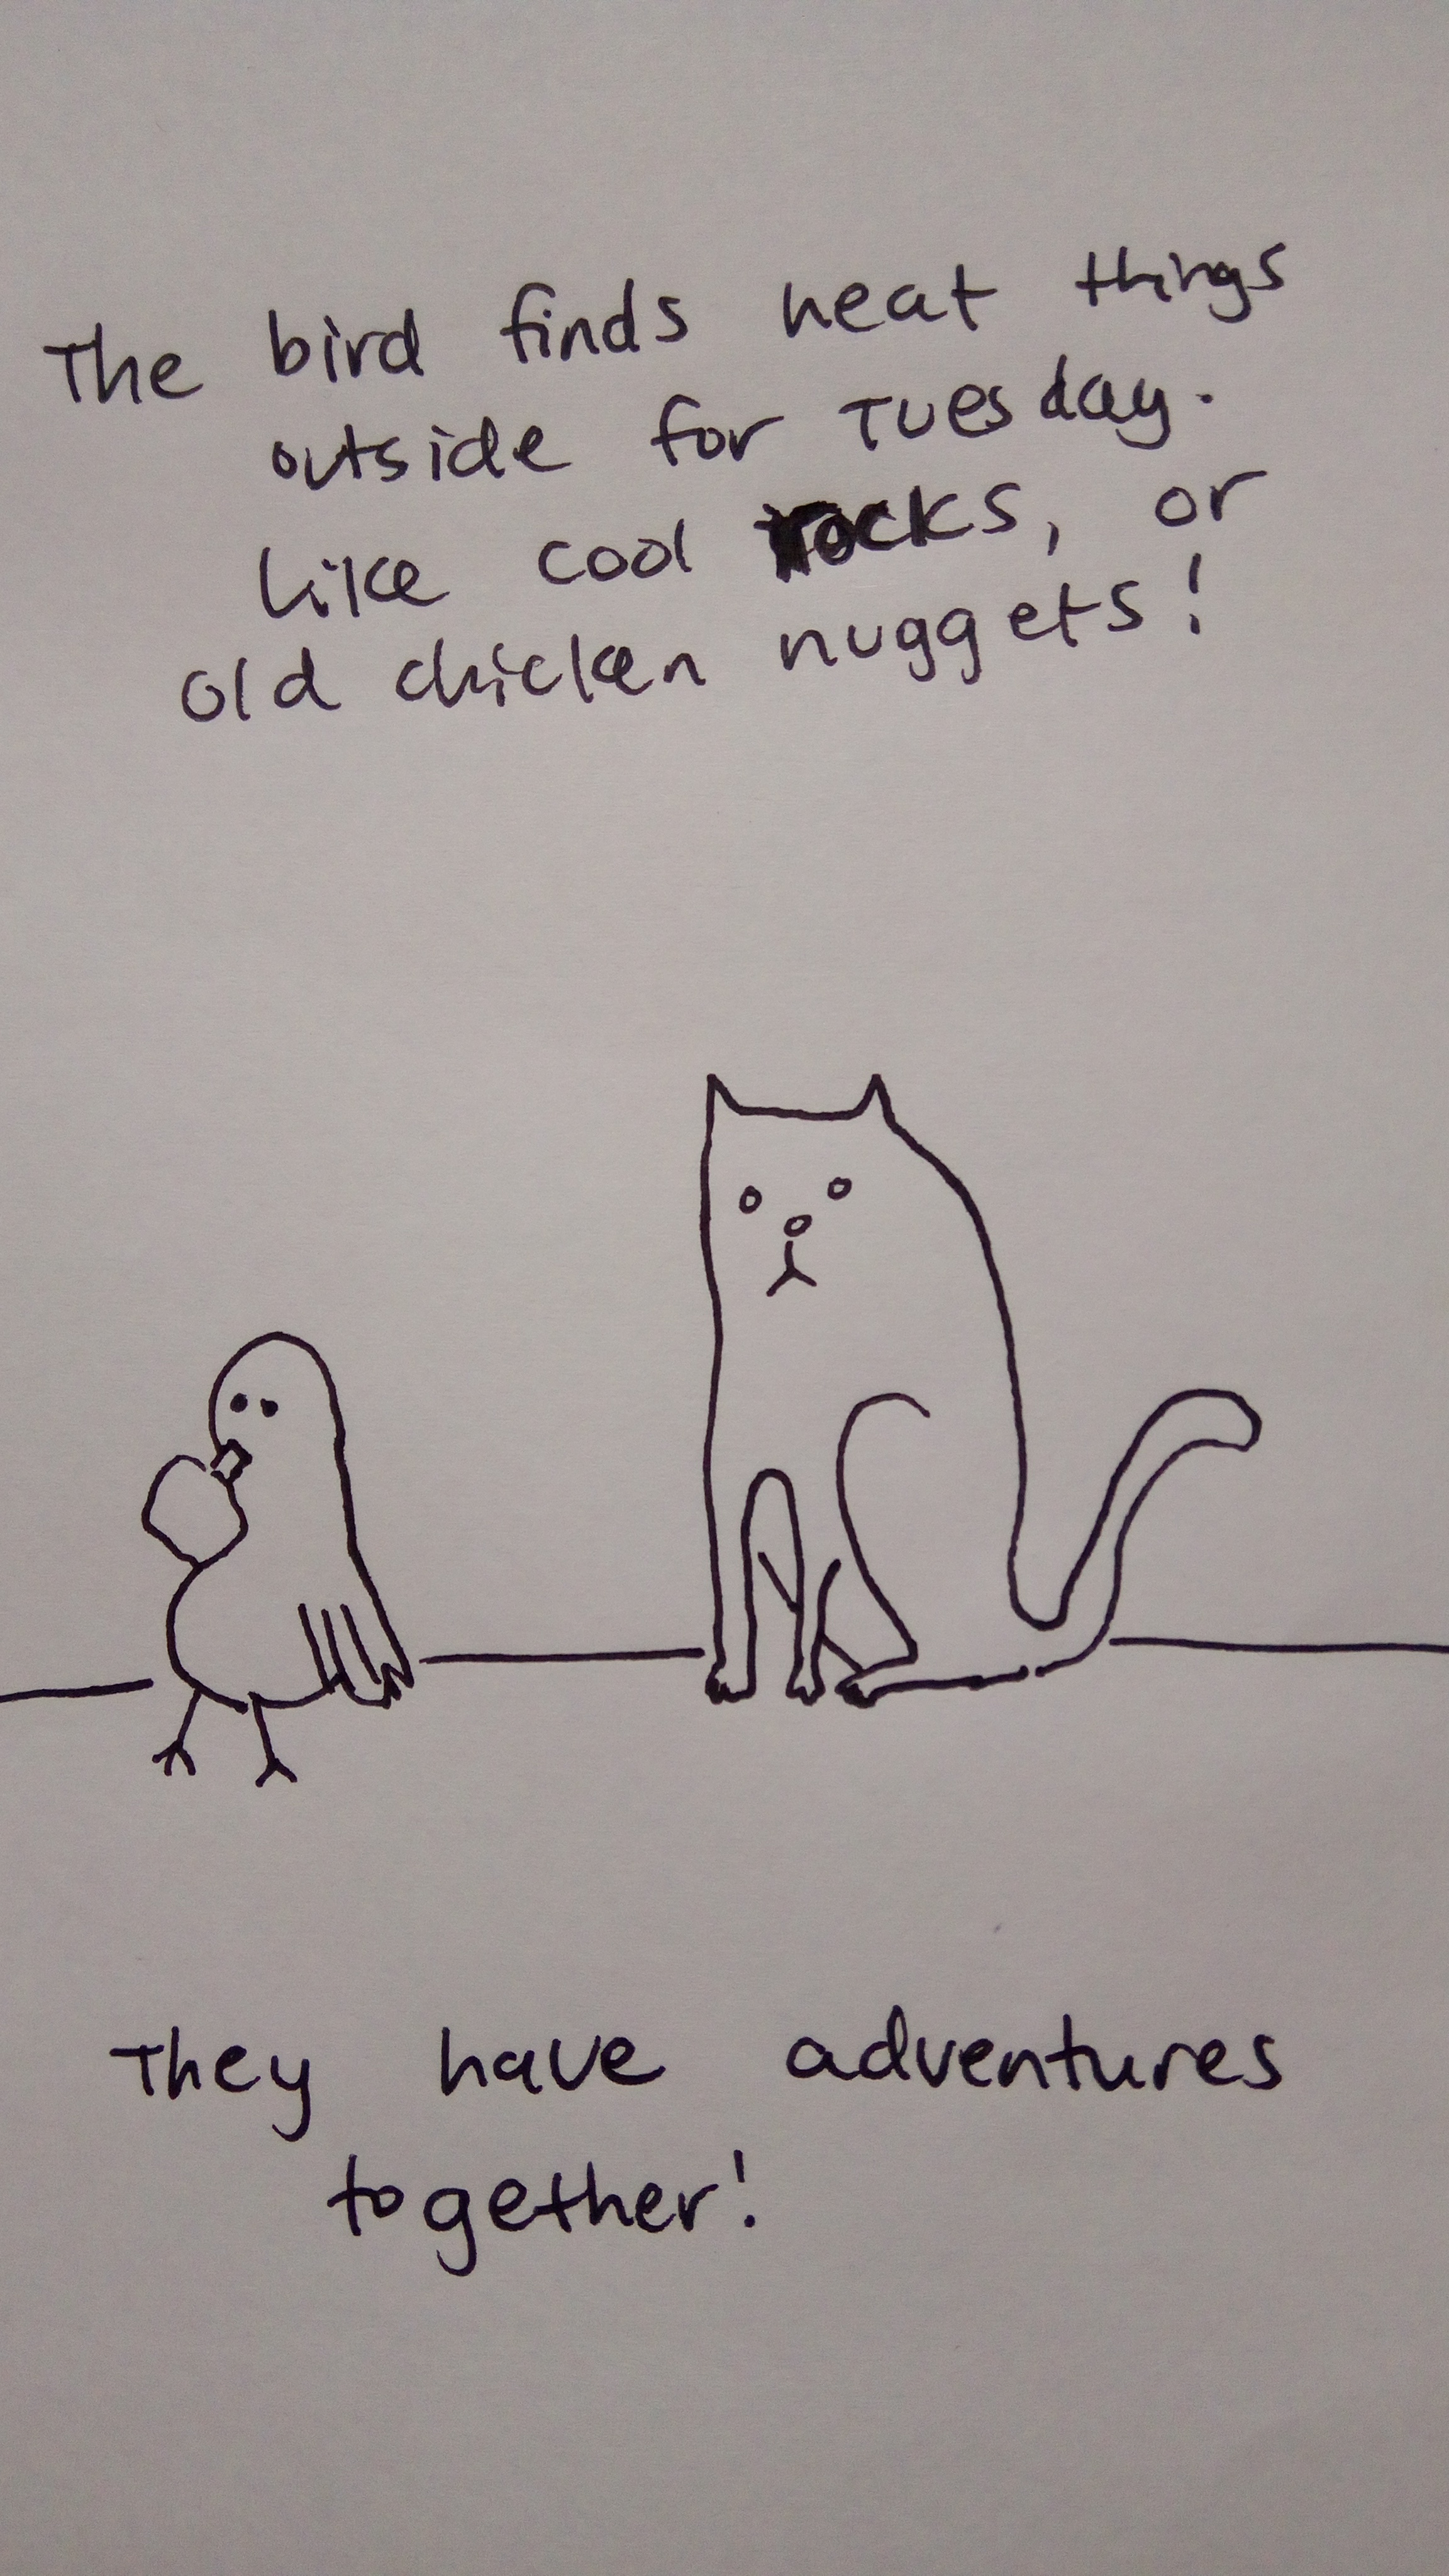 The bird finds neat things
outside for Tuesday.
Like cool rocks, or
old chicken nuggets!
They have adventures
together!